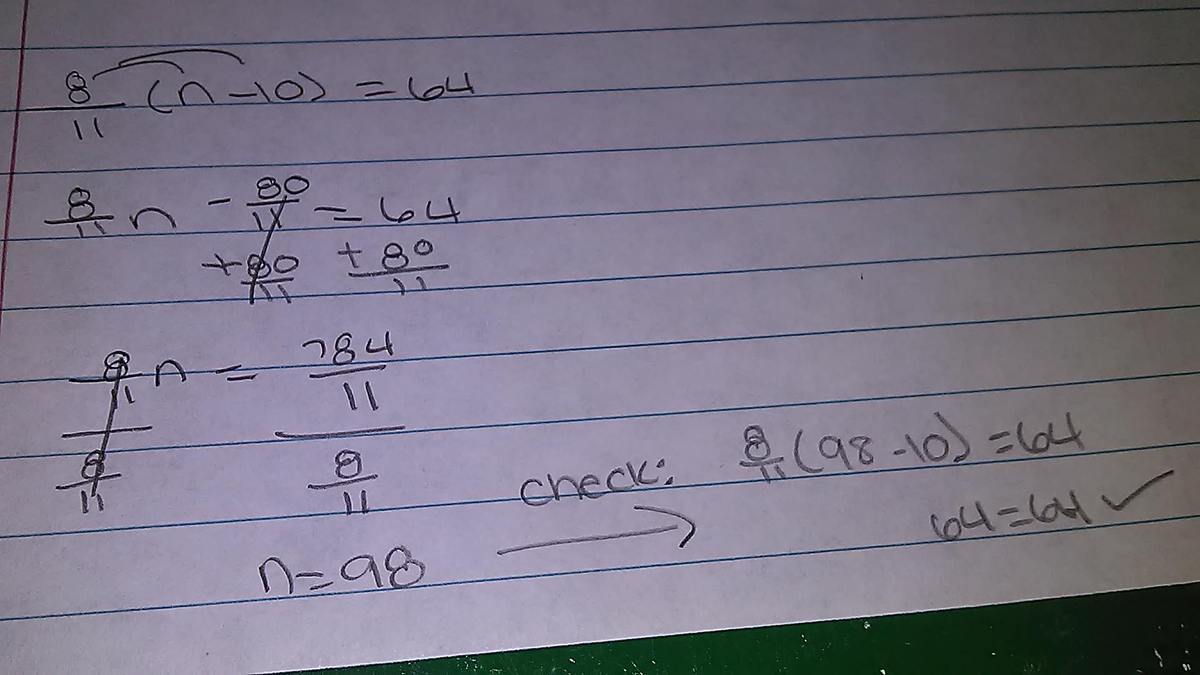 8/11 (n-10) = 64
8/11 n - 80/11 = 64
+80/11 +80/11
8/11 n = 784/11
8/11 8/11
n=98
check: 8/11 (98-10) = 64
64=64 ✓